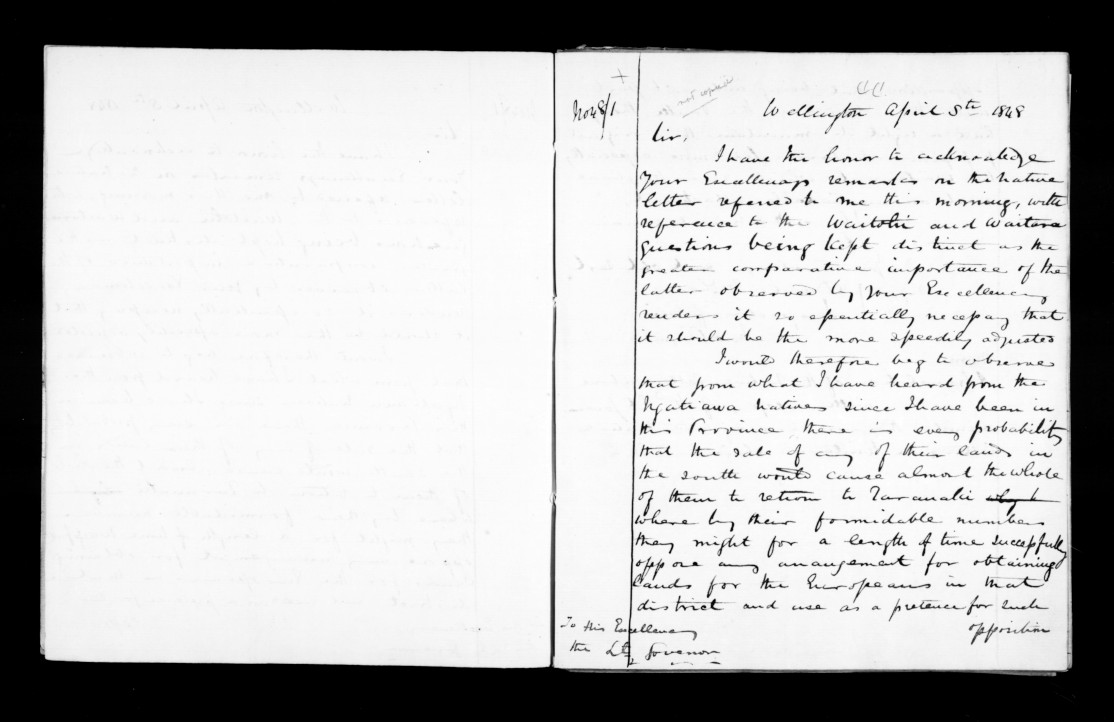 No 48/1
not copied
Wellington April 8th 1848
Sir,
I have the honor to acknowledge
Your Excellencys remarks on the native
letter referred to me this morning, with
reference to the Waitohi and Waitara
questions being kept distinct as the
greater comparative importance of the
latter observed by Your Excellency
renders it so essentially necessary that
it should be the more speedily adjusted
I would therefore beg to observe
that from what I have heard from the
Ngatiawa natives since I have been in
this Province there is every probability
that the sale of any of their lands in
the south would cause almost the whole
of them to return to Taranaki
where by their formidable numbers
they might for a length of time successfully
oppose any arrangement for obtaining
lands for the Europeans in that
district and use as a pretence for such
opposition
To His Excellency
the Lt Governor